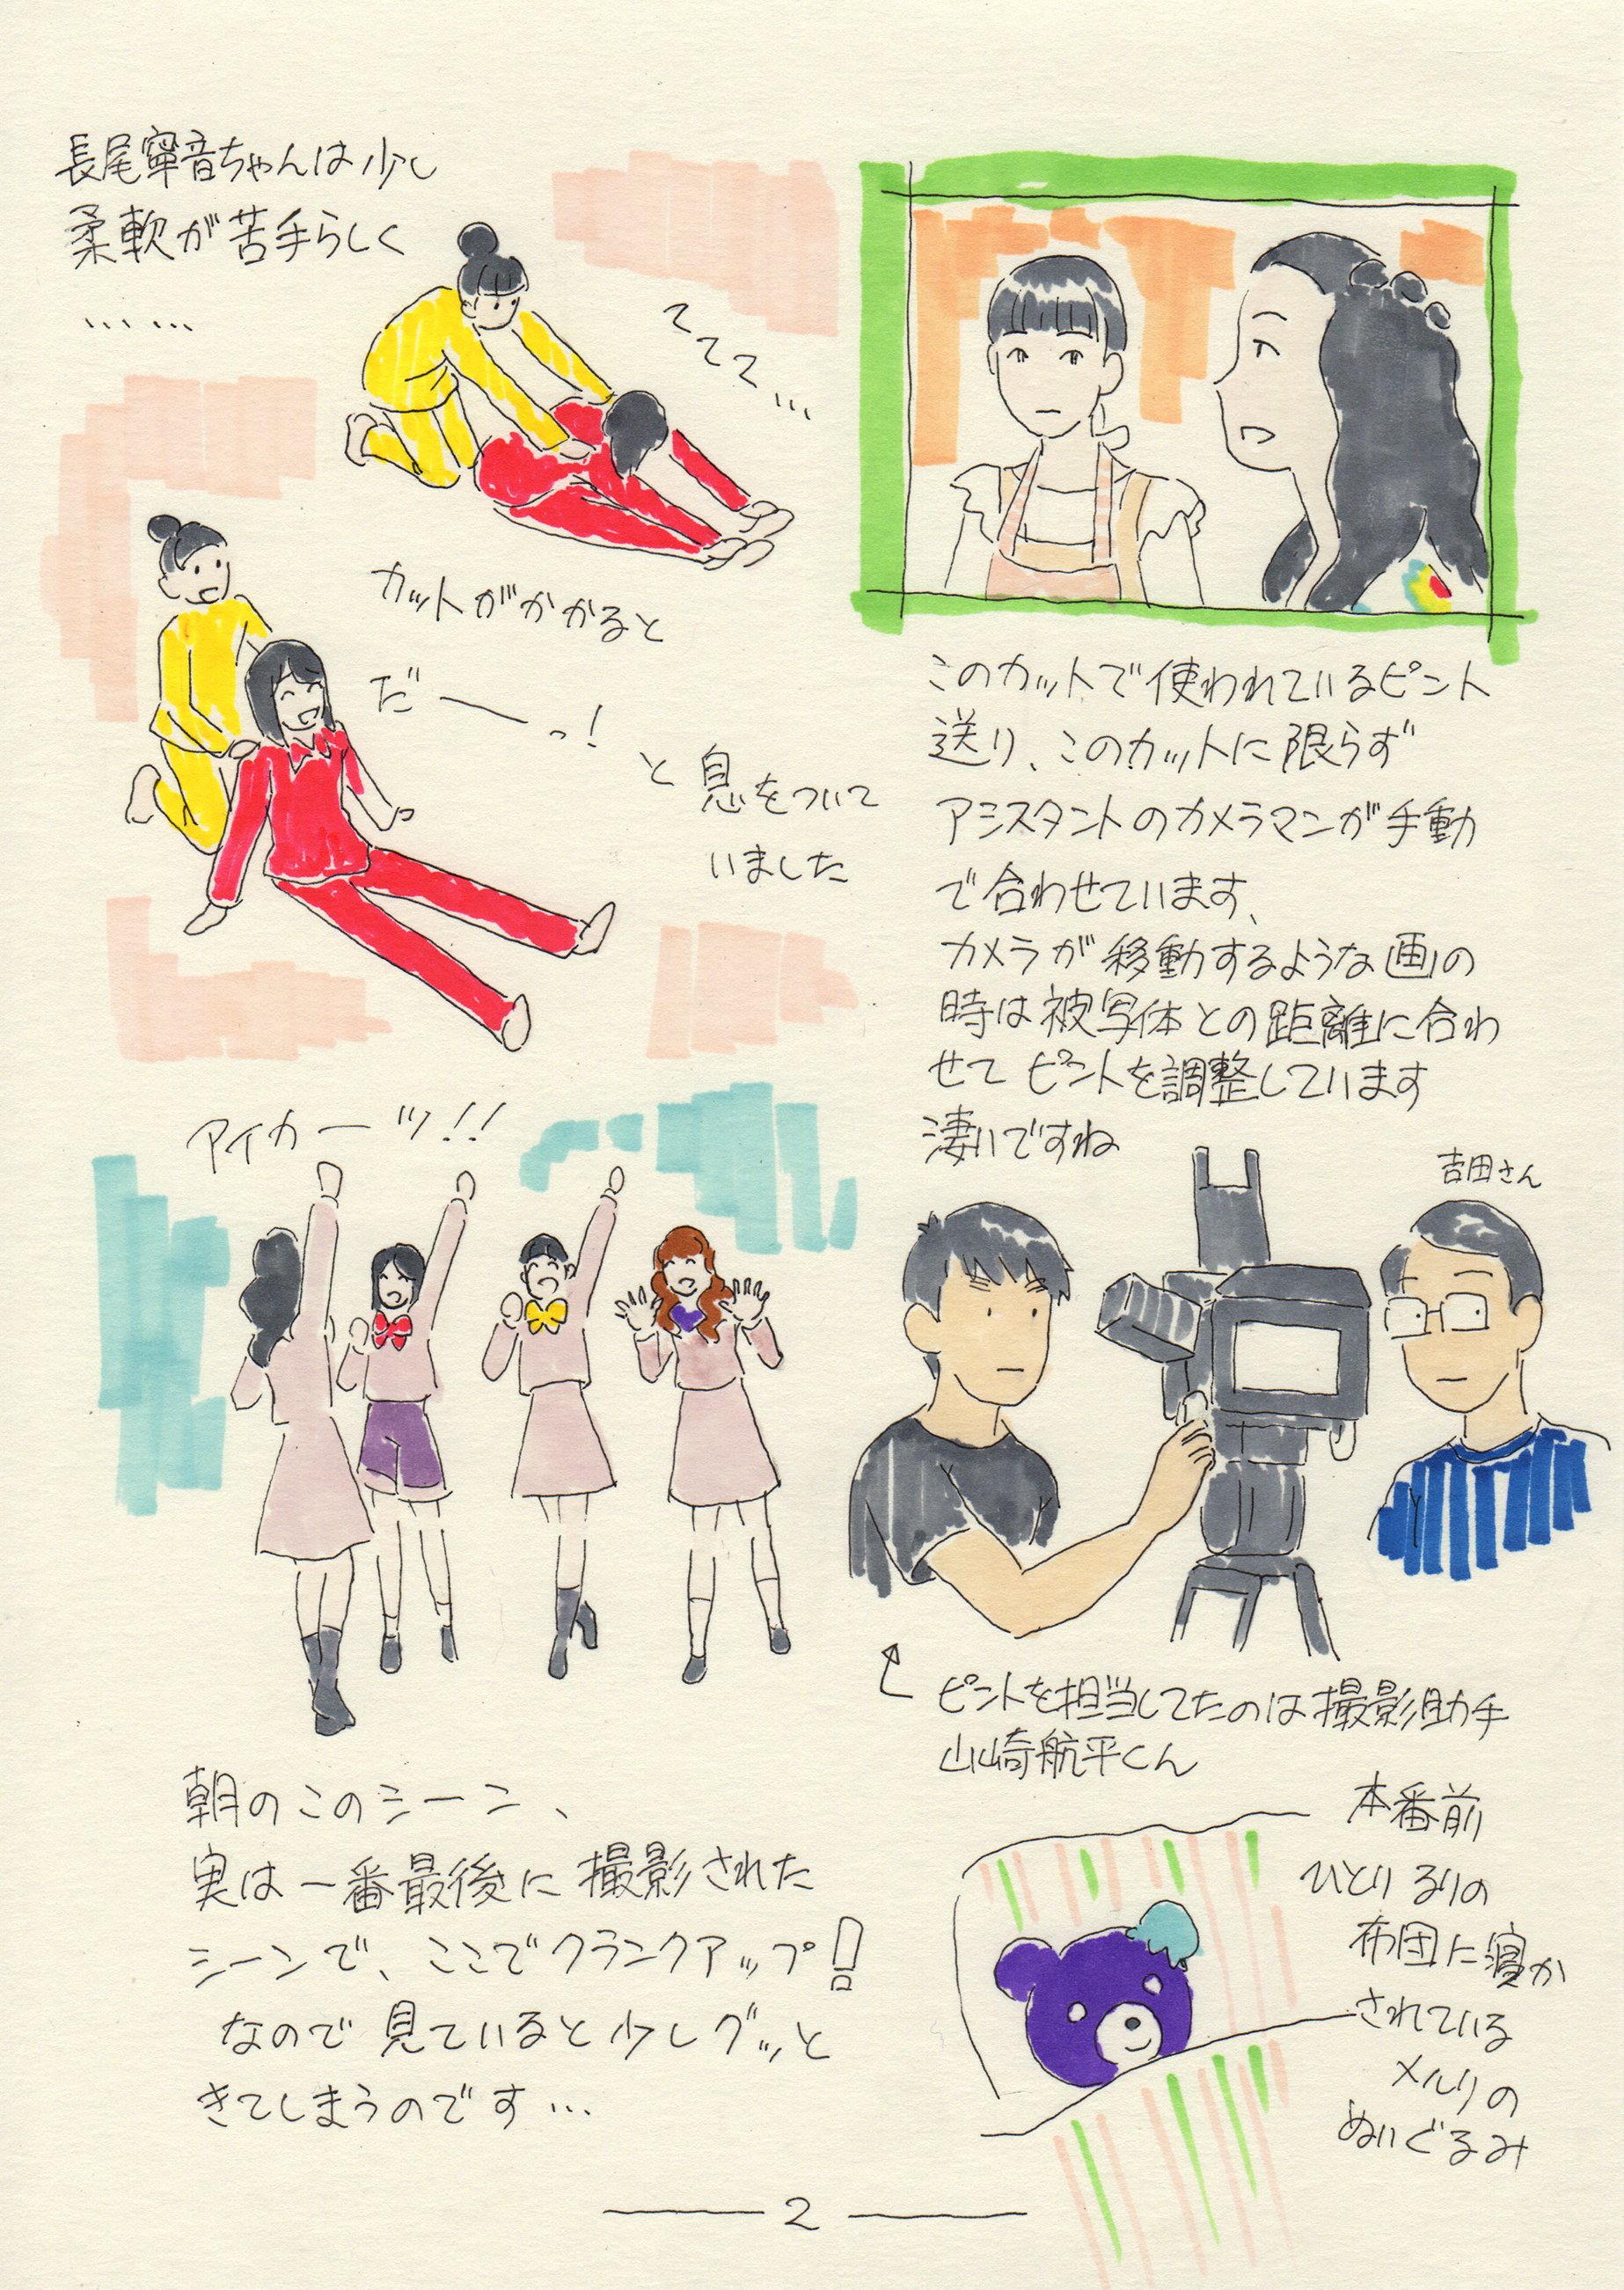 長尾寧音ちゃんは少し
柔軟が苦手らしく
……
ててて…
カットがかかると
だーーっ！
と息をついて
いました
アイカーツ!!
朝のこのシーン、
実は一番最後に撮影された
シーンで、ここでクランクアップ！
なので見ていると少しグッと
きてしまうのです…
このカットで使われているピント
送り、このカットに限らず
アシスタントのカメラマンが手動
で合わせています、
カメラが移動するような画の
時は被写体との距離に合わ
せてピントを調整しています
凄いですね
吉田さん
ピントを担当してたのは撮影助手
山崎航平くん
本番前
ひとりるりの
布団に寝か
されている
メルリの
ぬいぐるみ
2